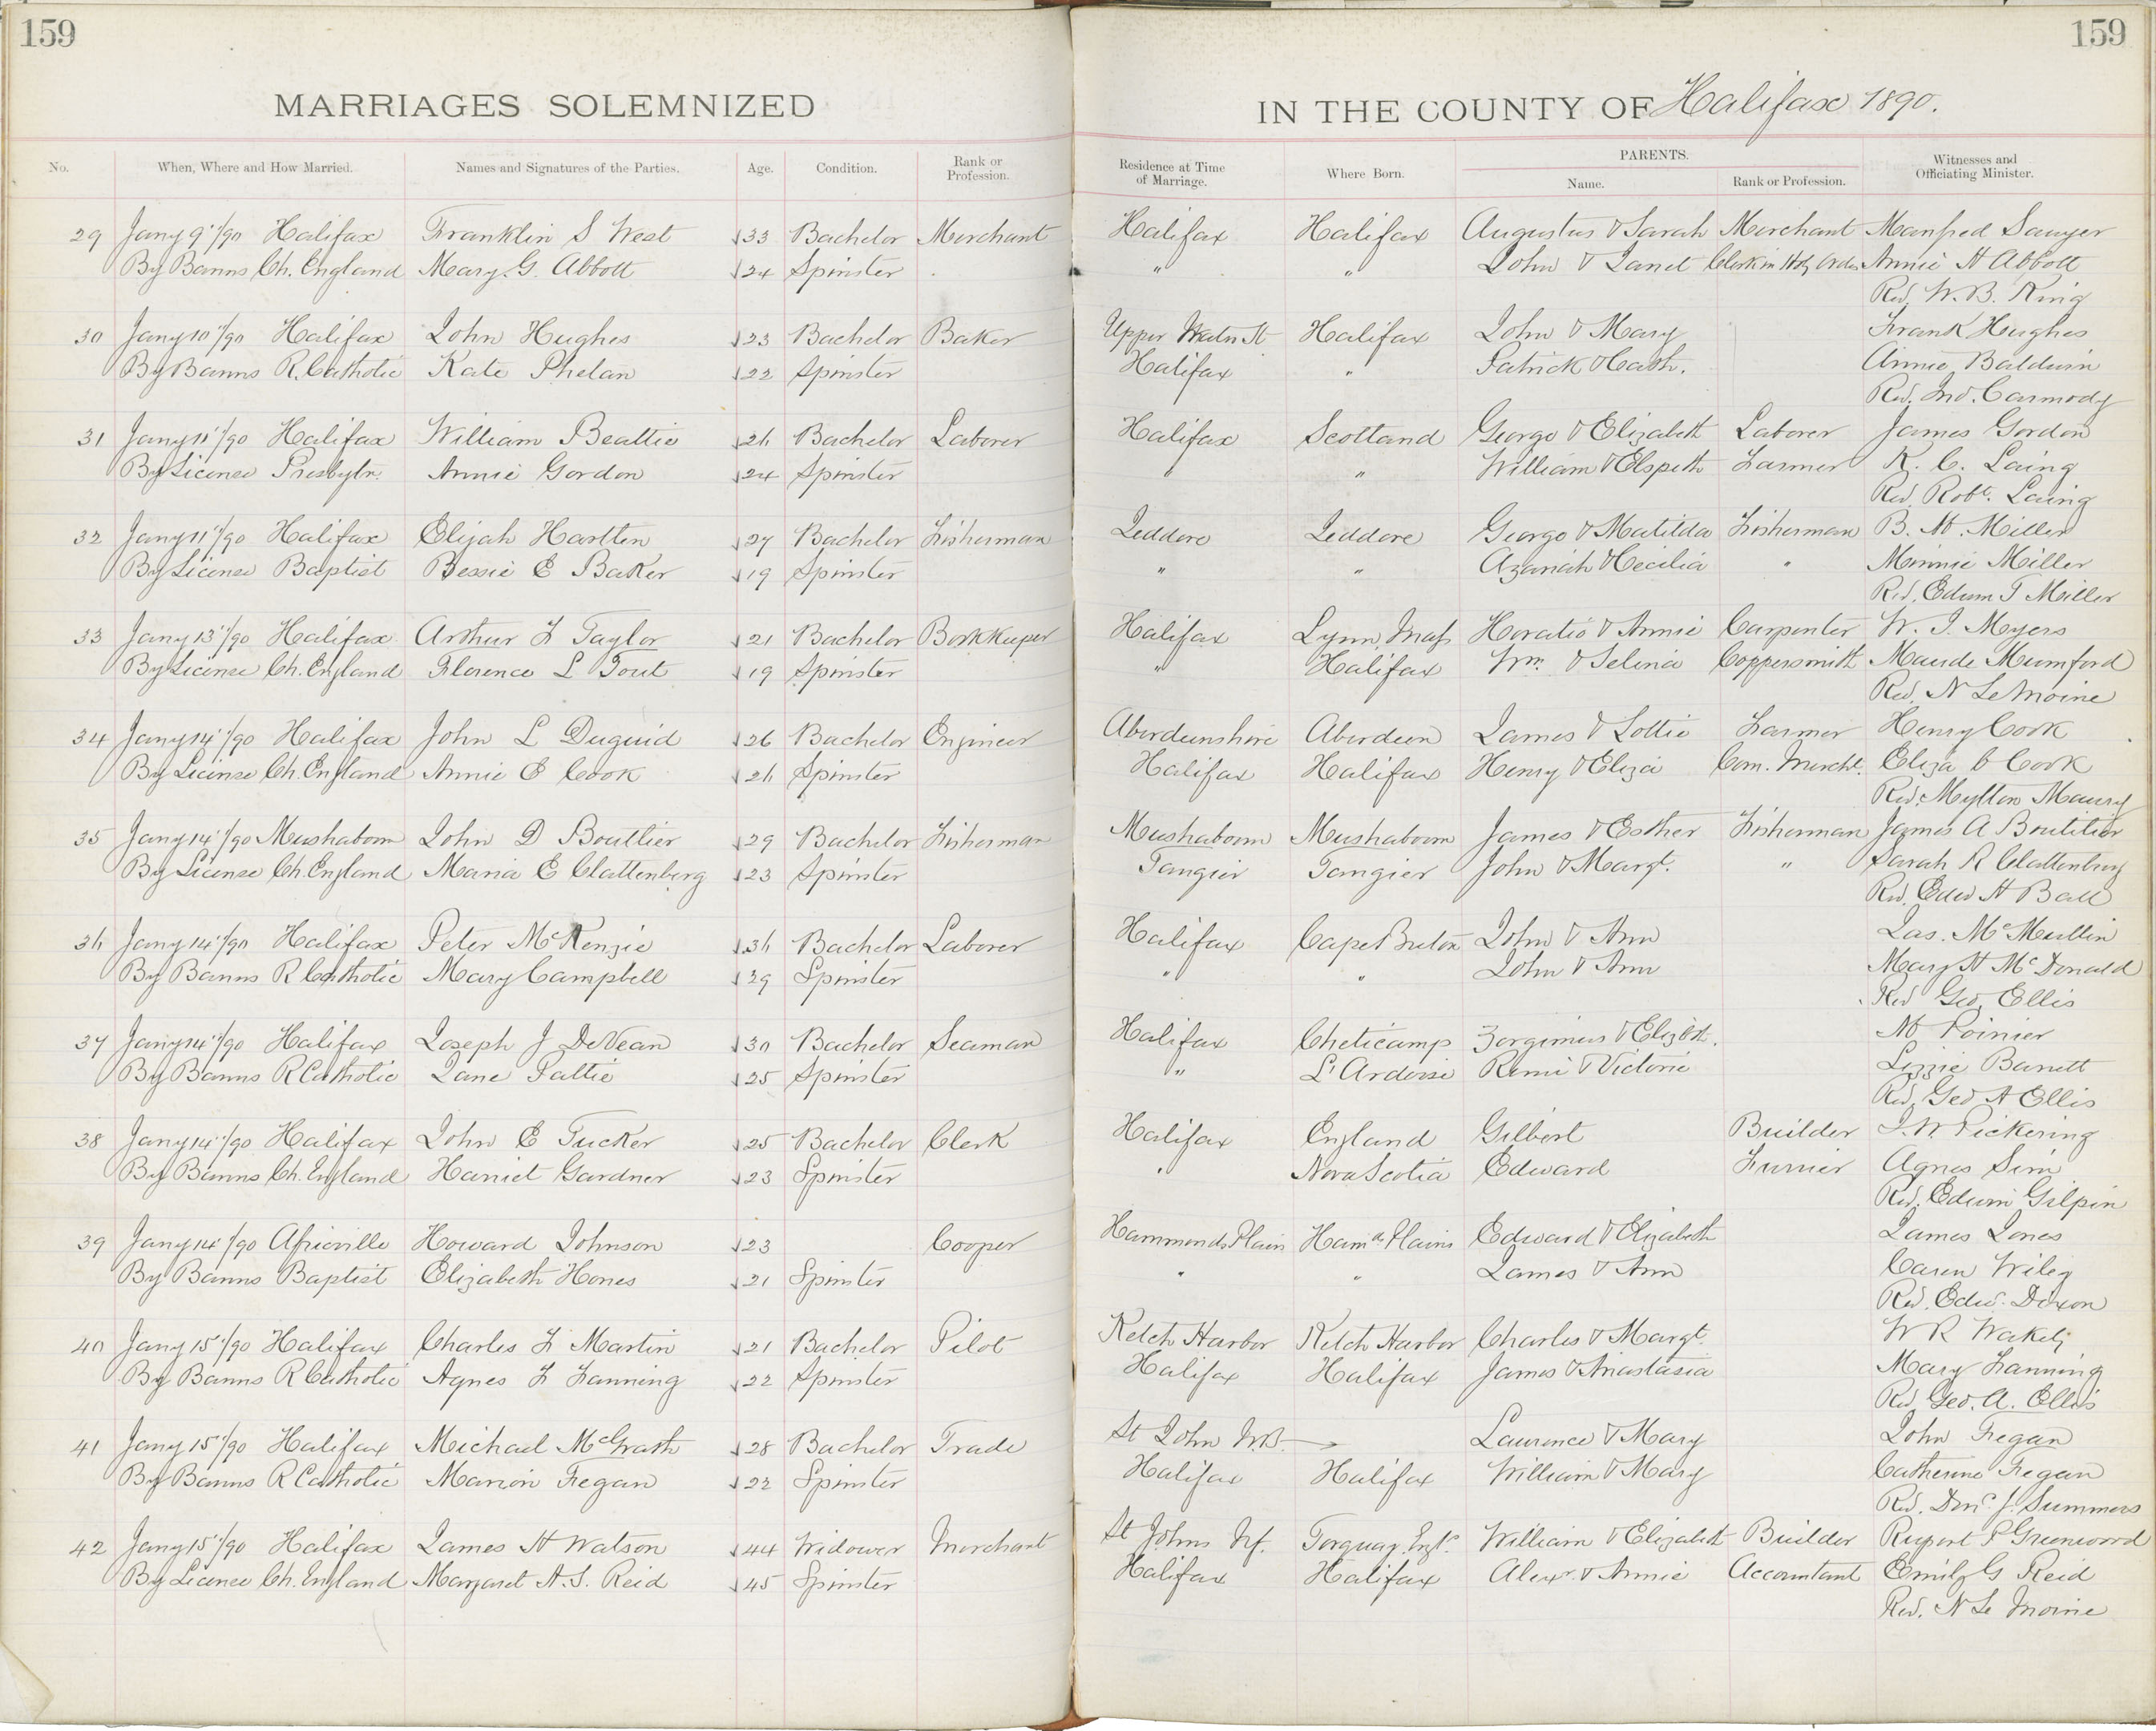 159
159
MARRIAGES SOLEMNIZED
IN THE COUNTY OF Halifax 1890.
No. When, Where and How Married. Names and Signatures of the Parties. Age. Condition. Rank or Profession. Residence at Time of Marriage. Where Born. PARENTS. Name. Rank or Profession. Witnesses and Officiating Minister.
29 Jany 9"/90 Halifax Franklin S West 33 Bachelor Merchant Halifax Halifax Augustus & Sarah Merchant Manfred Sawyer
By Banns Ch. England Mary G. Abbott 24 Spinster " " John & Janet Clerk in Holy Orders Annie H Abbott
Rev. W. B. King
30 Jany 10"/90 Halifax John Hughes 23 Bachelor Baker Upper Water St Halifax John & Mary Frank Hughes
By Banns R. Catholic Kate Phelan 22 Spinster Halifax " Patrick & Cath. Annie Baldwin
Rev. Jno. Carmody
31 Jany 11"/90 Halifax William Beattie 26 Bachelor Laborer Halifax Scotland George & Elizabeth Laborer James Gordon
By License Presbytn. Annie Gordon 24 Spinster " " William & Elspeth Farmer K. C. Laing
Rev. Robt. Laing
32 Jany 11"/90 Halifax Elijah Hartlen 27 Bachelor Fisherman Jeddore Jeddore George & Matilda Fisherman B. M. Miller
By License Baptist Bessie E Baker 19 Spinster " " Azariah & Cecilia " Minnie Miller
Rev. Edwm T Miller
33 Jany 13"/90 Halifax Arthur F Taylor 21 Bachelor Bookkeeper Halifax Lynn, Mass Horatio & Annie Carpenter W. J. Myers
By License Ch. England Florence L Tout 19 Spinster " Halifax Wm. & Selina Coppersmith Maude Mumford
Rev. N LeMoine
34 Jany 14"/90 Halifax John L Duguid 26 Bachelor Engineer Aberdeenshire Aberdeen James & Lottie Farmer Henry Cook
By License Ch. England Annie E Cook 26 Spinster Halifax Halifax Henry & Eliza Com. Mercht. Eliza C Cook
Rev. Mytton Maury
35 Jany 14"/90 Mushaboom John D Boutlier 29 Bachelor Fisherman Mushaboom Mushaboom James & Esther Fisherman James A Boutilier
By License Ch. England Maria E Clattenberg 23 Spinster Tangier Tangier John & Margt. " Sarah R Clattenburg
Rev. Edw H Ball
36 Jany 14"/90 Halifax Peter McKenzie 36 Bachelor Laborer Halifax Cape Breton John & Ann Jas. McMullin
By Banns R Catholic Mary Campbell 39 Spinster " " John & Ann Mary H McDonald
Rev Geo. Ellis
37 Jany 14"/90 Halifax Joseph J DeVean 30 Bachelor Seaman Halifax Cheticamp & Elizbth. M Poirier
By Banns R Catholic Jane Pattie 25 Spinster " L'Ardoise Remi & Victorie Lizzie Barrett
Rev. Geo A Ellis
38 Jany 14"/90 Halifax John E Tucker 25 Bachelor Clerk Halifax England Gilbert Builder J. W. Pickering
By Banns Ch. England Harriet Gardner 23 Spinster " Nova Scotia Edward Furrier Agnes Sim
Rev. Edwin Gilpin
39 Jany 14"/90 Africville Howard Johnson 23 Cooper Hammonds Plain Hamd. Plains Edward & Elizabeth James Jones
By Banns Baptist Elizabeth Hones 21 Spinster " " James & Ann Caren Wiley
Rev. Edw. Dixon
40 Jany 15"/90 Halifax Charles F Martin 21 Bachelor Pilot Ketch Harbor Ketch Harbor Charles & Margt. W R Wakely
By Banns R Catholic Agnes F Fanning 22 Spinster Halifax Halifax James & Anastasia Mary Fanning
Rev. Geo. A. Ellis
41 Jany 15"/90 Halifax Michael McGrath 28 Bachelor Trade St John NB. Laurence & Mary John Fregan
By Banns R Catholic Marion Fregan 22 Spinster Halifax Halifax William & Mary Catherine Fregan
Rev. J. Summers
42 Jany 15"/90 Halifax James H Watson 44 Widower Merchant St Johns Nf. Torquay, Engl. William & Elizabeth Builder Rupert P Greenwood
By License Ch. England Margaret A. S. Reid 45 Spinster Halifax Halifax Alexr. & Annie Accountant Emily G Reid
Rev. N Le Moine